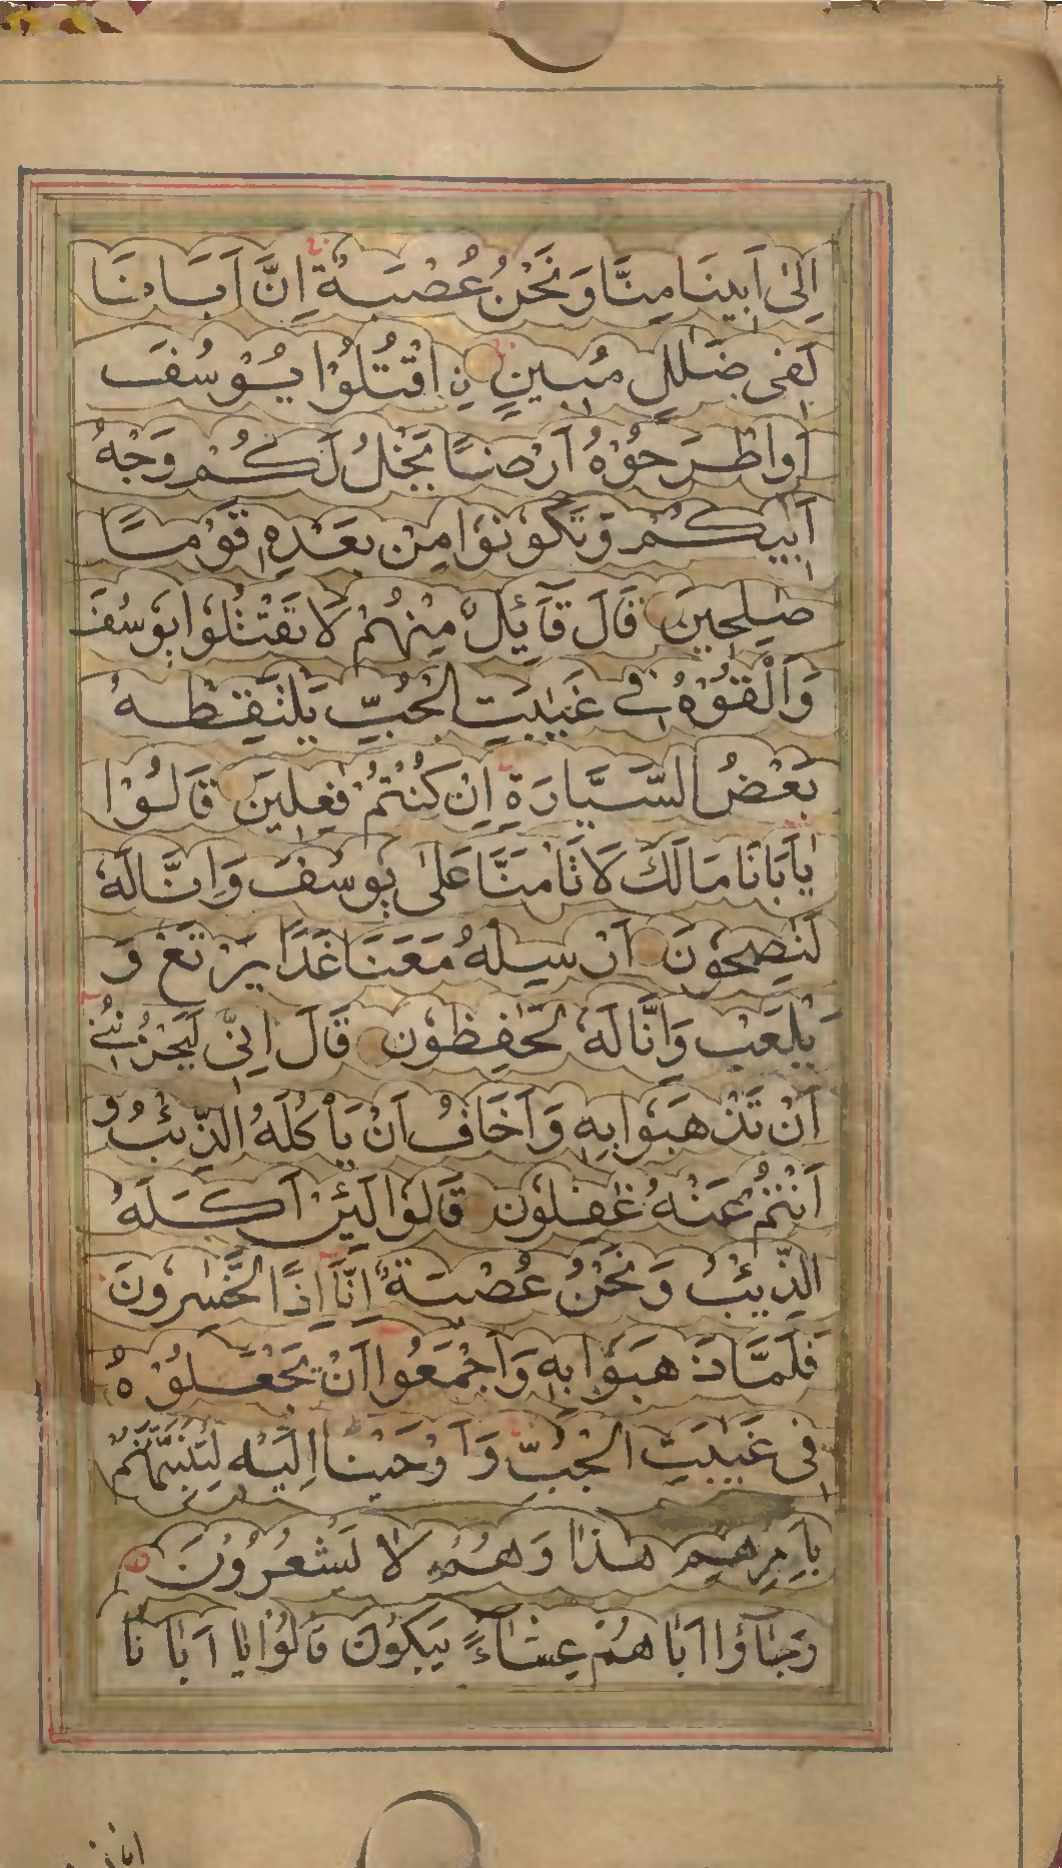 اِلٰى اَبِينَا مِنَّا وَنَحْنُ عُصْبَةٌ اِنَّ اَبَانَا
لَفِى ضَلٰلٍ مُبِينٍ نِ اقْتُلُوْا يُوْسُفَ
اَوِاطْرَحُوْهُ اَرْضًا يَخْلُ لَكُمْ وَجْهُ
اَبِيكُمْ وَتَكُوْنُوْا مِنْ بَعْدِهٖ قَوْمًا
صٰلِحِينَ قَالَ قَآئِلٌ مِنْهُمْ لَا تَقْتُلُوْا يُوْسُفَ
وَاَلْقُوْهُ فِى غَيٰبَتِ الْجُبِّ يَلْتَقِطْهُ
بَعْضُ السَّيَّارَةِ اِنْ كُنْتُمْ فٰعِلِينَ قَالُوْا
يٰاَبَانَا مَالَكَ لَا تَاْمَنَّا عَلٰى يُوْسُفَ وَاِنَّا لَهٗ
لَنٰصِحُوْنَ اَرْسِلْهُ مَعَنَا غَدًا يَرْتَعْ وَ
يَلْعَبْ وَاِنَّا لَهٗ لَحٰفِظُوْنَ قَالَ اِنِّى لَيَحْزُنُنِىْ
اَنْ تَذْهَبُوْا بِهٖ وَاَخَافُ اَنْ يَاْكُلَهُ الذِّئْبُ وَ
اَنْتُمْ عَنْهُ غٰفِلُوْنَ قَالُوْا لَئِنْ اَكَلَهُ
الذِّئْبُ وَنَحْنُ عُصْبَةٌ اِنَّا اِذًا لَّخٰسِرُوْنَ
فَلَمَّا ذَهَبُوْا بِهٖ وَاَجْمَعُوْا اَنْ يَجْعَلُوْهُ
فِى غَيٰبَتِ الْجُبِّ وَاَوْحَيْنَا اِلَيْهِ لَتُنَبِّئَنَّهُمْ
بِاَمْرِهِمْ هٰذَا وَهُمْ لَا يَشْعُرُوْنَ
وَجَاؤُا اَبَاهُمْ عِشَآءً يَبْكُوْنَ قَالُوْا يَا اَبَانَا